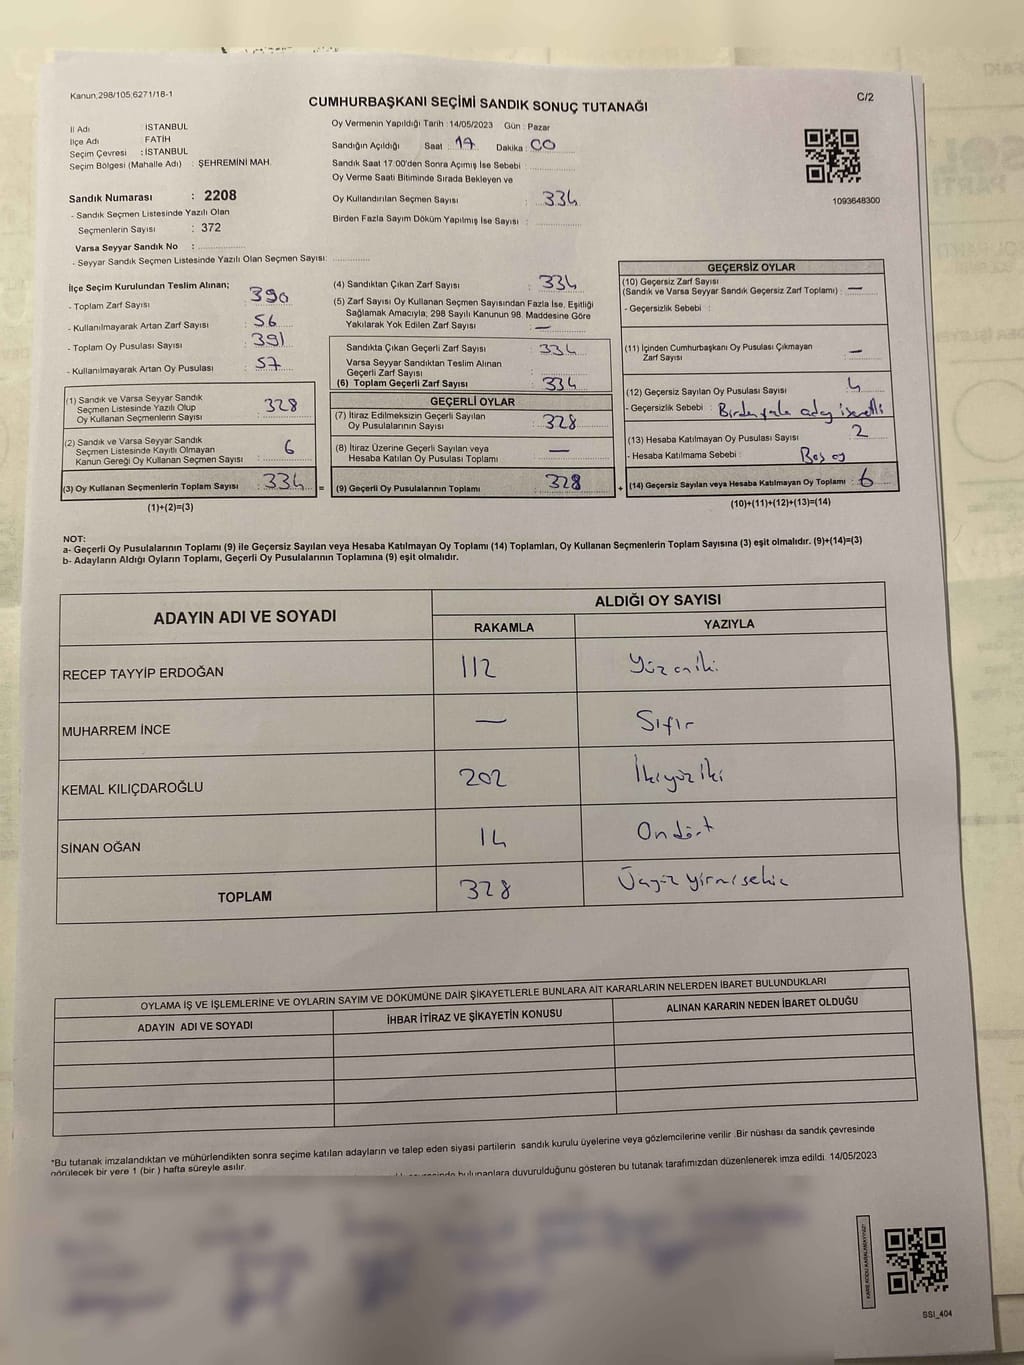 Kanun,298/105,6271/18-1
CUMHURBAŞKANI SEÇİMİ SANDIK SONUÇ TUTANAĞI
C/2
İl Adı : İSTANBUL
İlçe Adı : FATİH
Seçim Çevresi : İSTANBUL
Seçim Bölgesi (Mahalle Adı) : ŞEHREMİNİ MAH.
Sandık Numarası : 2208
- Sandık Seçmen Listesinde Yazılı Olan
Seçmenlerin Sayısı : 372
Varsa Seyyar Sandık No :
- Seyyar Sandık Seçmen Listesinde Yazılı Olan Seçmen Sayısı:
Oy Vermenin Yapıldığı Tarih : 14/05/2023 Gün : Pazar
Sandığın Açıldığı Saat : 17 Dakika : 00
Sandık Saat 17 00'den Sonra Açımış İse Sebebi :
Oy Verme Saati Bitiminde Sırada Bekleyen ve
Oy Kullandırılan Seçmen Sayısı : 334
Birden Fazla Sayım Döküm Yapılmış İse Sayısı :
1093648300
İlçe Seçim Kurulundan Teslim Alınan;
- Toplam Zarf Sayısı : 390
- Kullanılmayarak Artan Zarf Sayısı : 56
- Toplam Oy Pusulası Sayısı : 391
- Kullanılmayarak Artan Oy Pusulası : 57
(1) Sandık ve Varsa Seyyar Sandık
Seçmen Listesinde Yazılı Olup
Oy Kullanan Seçmenlerin Sayısı : 328
(2) Sandık ve Varsa Seyyar Sandık
Seçmen Listesinde Kayıtlı Olmayan
Kanun Gereği Oy Kullanan Seçmen Sayısı : 6
(3) Oy Kullanan Seçmenlerin Toplam Sayısı : 334 =
(1)+(2)=(3)
(4) Sandıktan Çıkan Zarf Sayısı : 334
(5) Zarf Sayısı Oy Kullanan Seçmen Sayısından Fazla İse, Eşitliği
Sağlamak Amacıyla; 298 Sayılı Kanunun 98. Maddesine Göre
Yakılarak Yok Edilen Zarf Sayısı : —
Sandıkta Çıkan Geçerli Zarf Sayısı : 334
Varsa Seyyar Sandıktan Teslim Alınan
Geçerli Zarf Sayısı
(6) Toplam Geçerli Zarf Sayısı : 334
GEÇERLİ OYLAR
(7) İtiraz Edilmeksizin Geçerli Sayılan
Oy Pusulalarının Sayısı : 328
(8) İtiraz Üzerine Geçerli Sayılan veya
Hesaba Katılan Oy Pusulası Toplamı : —
(9) Geçerli Oy Pusulalarının Toplamı : 328 +
GEÇERSİZ OYLAR
(10) Geçersiz Zarf Sayısı
(Sandık ve Varsa Seyyar Sandık Geçersiz Zarf Toplamı) : —
- Geçersizlik Sebebi :
(11) İçinden Cumhurbaşkanı Oy Pusulası Çıkmayan
Zarf Sayısı : —
(12) Geçersiz Sayılan Oy Pusulası Sayısı : 4
- Geçersizlik Sebebi : Birden fazla aday işaretli
(13) Hesaba Katılmayan Oy Pusulası Sayısı : 2
- Hesaba Katılmama Sebebi : Boş oy
(14) Geçersiz Sayılan veya Hesaba Katılmayan Oy Toplamı : 6
(10)+(11)+(12)+(13)=(14)
NOT:
a- Geçerli Oy Pusulalarının Toplamı (9) ile Geçersiz Sayılan veya Hesaba Katılmayan Oy Toplamı (14) Toplamları, Oy Kullanan Seçmenlerin Toplam Sayısına (3) eşit olmalıdır. (9)+(14)=(3)
b- Adayların Aldığı Oyların Toplamı, Geçerli Oy Pusulalarının Toplamına (9) eşit olmalıdır.
ADAYIN ADI VE SOYADI
ALDIĞI OY SAYISI
RAKAMLA YAZIYLA
RECEP TAYYİP ERDOĞAN 112 Yüzoniki
MUHARREM İNCE — Sıfır
KEMAL KILIÇDAROĞLU 202 İkiyüziki
SİNAN OĞAN 14 Ondört
TOPLAM 328 Üçyüz yirmisekiz
OYLAMA İŞ VE İŞLEMLERİNE VE OYLARIN SAYIM VE DÖKÜMÜNE DAİR ŞİKAYETLERLE BUNLARA AİT KARARLARIN NELERDEN İBARET BULUNDUKLARI
ADAYIN ADI VE SOYADI İHBAR İTİRAZ VE ŞİKAYETİN KONUSU ALINAN KARARIN NEDEN İBARET OLDUĞU
*Bu tutanak imzalandıktan ve mühürlendikten sonra seçime katılan adayların ve talep eden siyasi partilerin sandık kurulu üyelerine veya gözlemcilerine verilir .Bir nüshası da sandık çevresinde
görülecek bir yere 1 (bir ) hafta süreyle asılır.
bulunanlara duyurulduğunu gösteren bu tutanak tarafımızdan düzenlenerek imza edildi. 14/05/2023
SSI_404